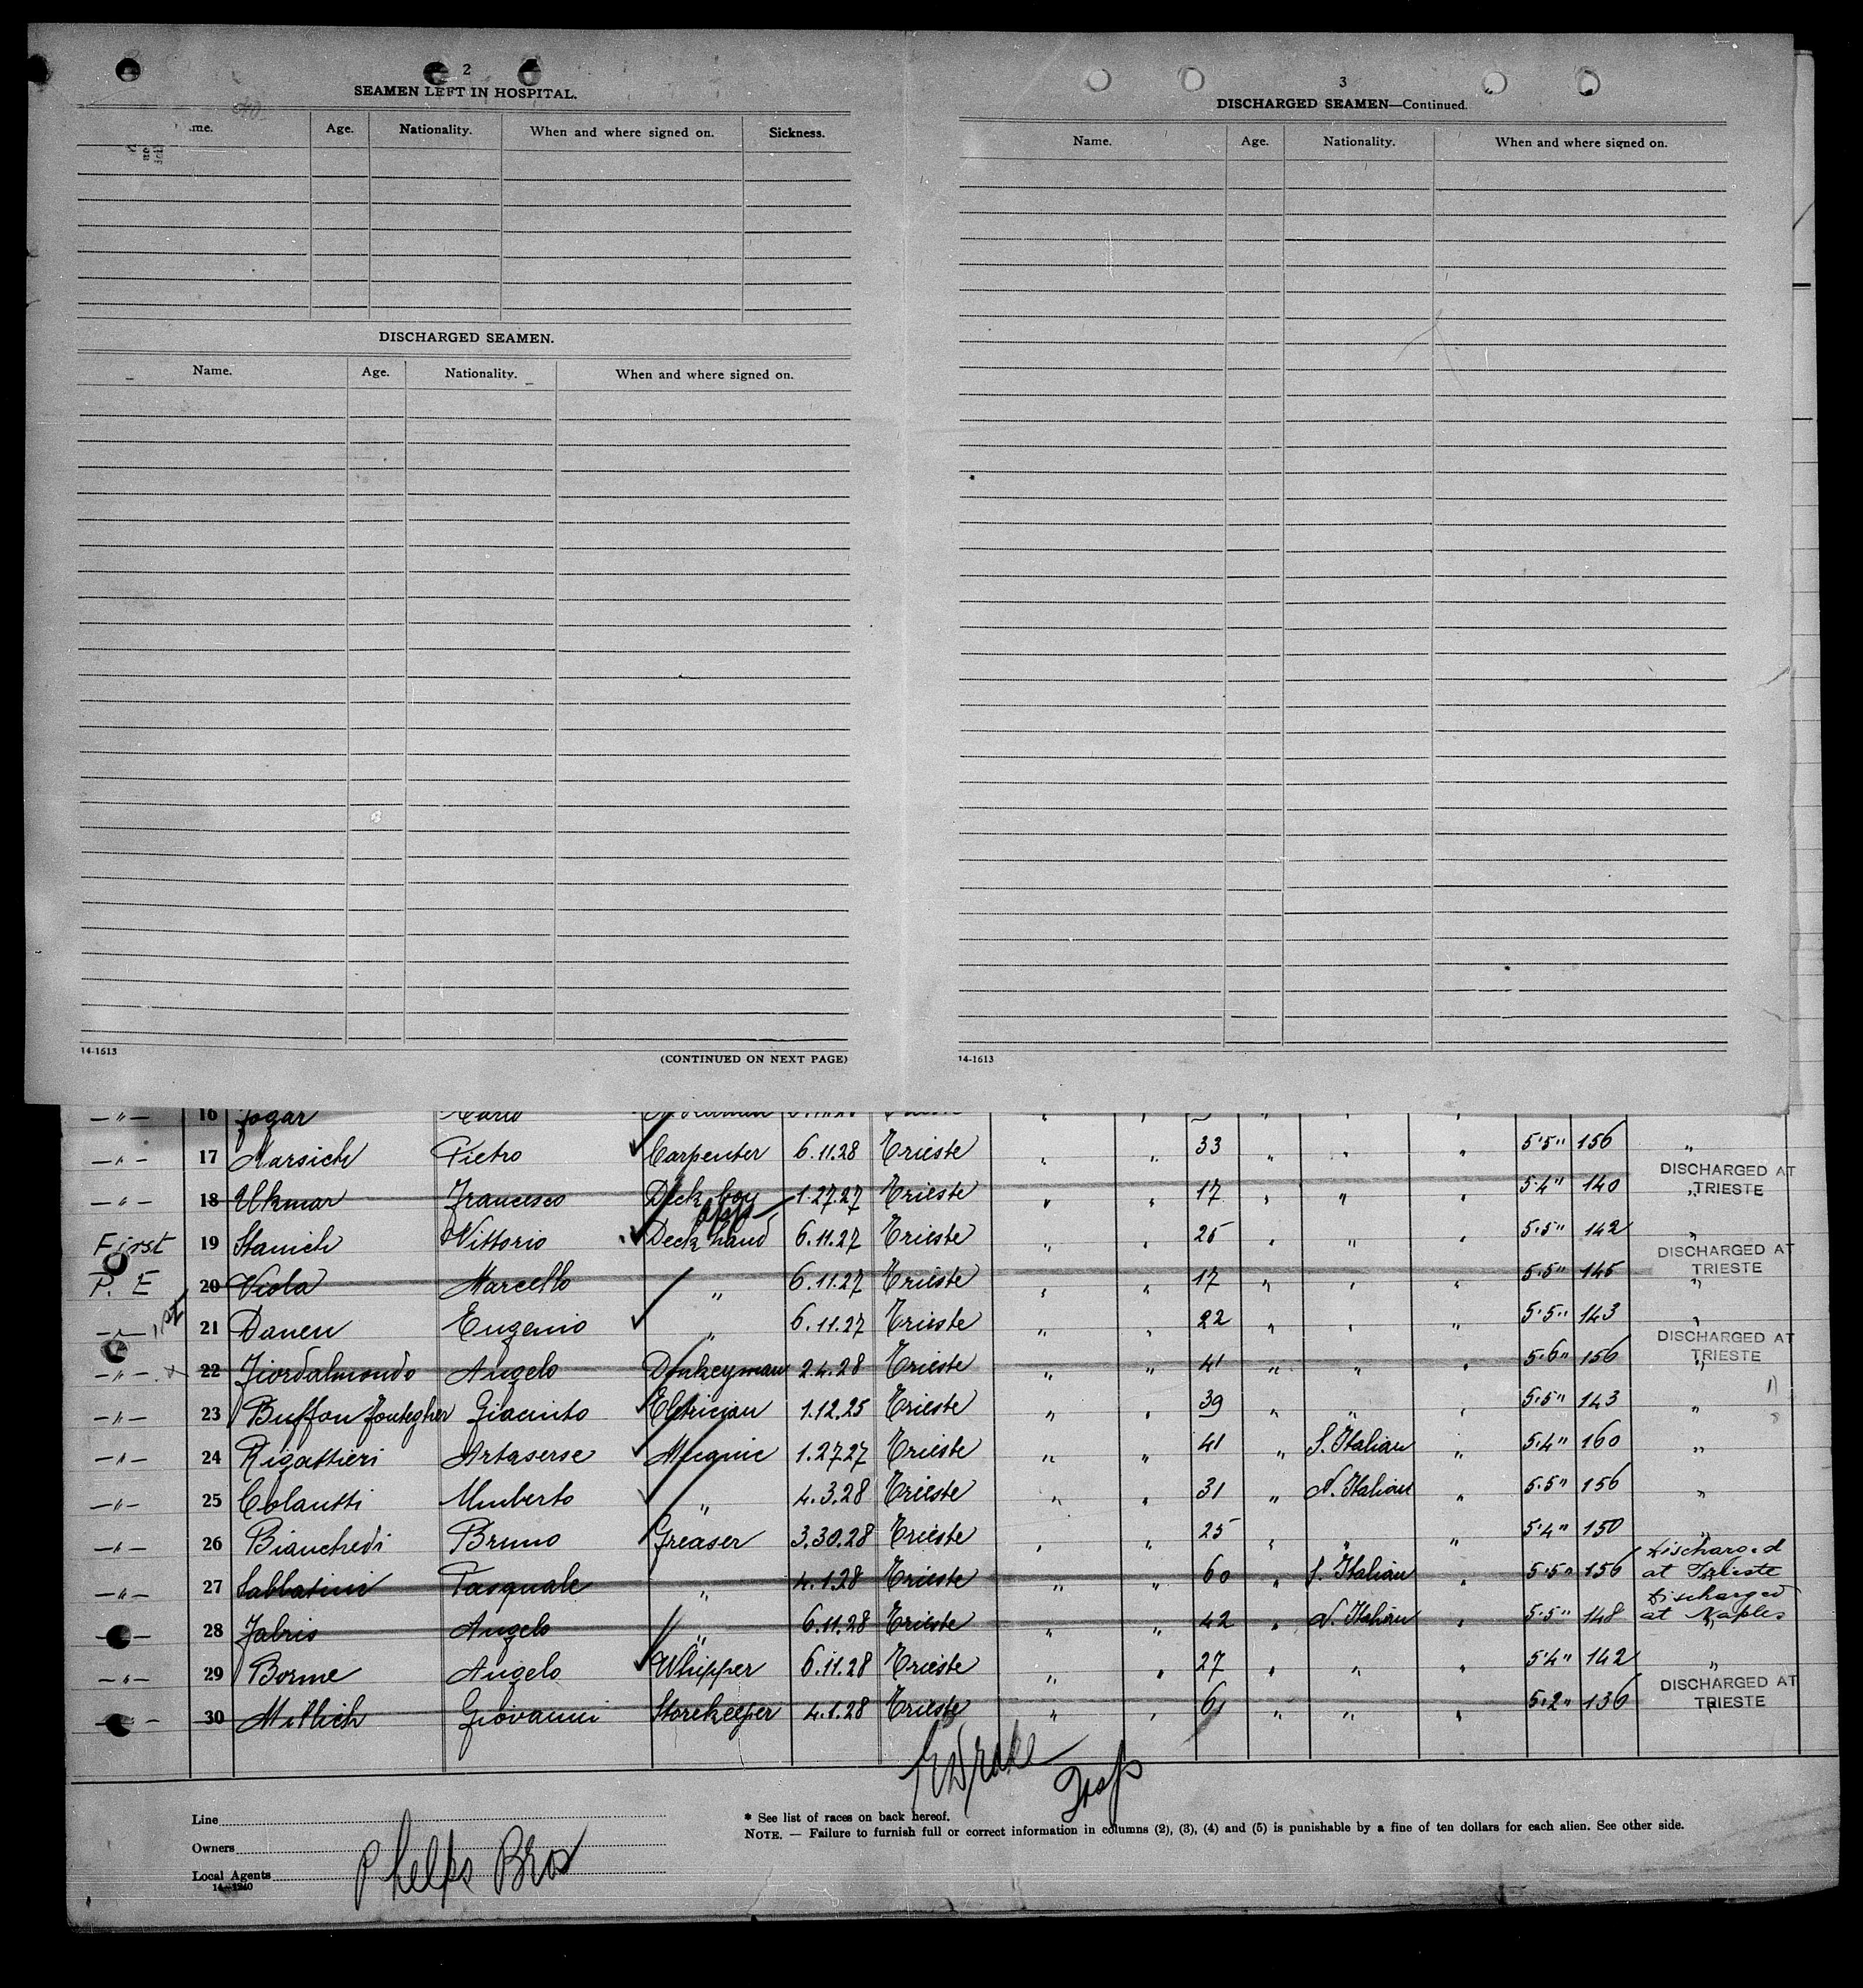 2
SEAMEN LEFT IN HOSPITAL.
me. Age. Nationality. When and where signed on. Sickness.
DISCHARGED SEAMEN.
Name. Age. Nationality. When and where signed on.
14-1613 (CONTINUED ON NEXT PAGE)
3
DISCHARGED SEAMEN—Continued.
Name. Age. Nationality. When and where signed on.
14-1613
—"— 16 Jogar
—"— 17 Marsich Pietro Carpenter 6.11.28 Trieste " " 33 " " " 5'5" 156 "
—"— 18 Ukmar Francesco Deck boy 1.27.27 Trieste " " 17 " " " 5'4" 140 " DISCHARGED AT TRIESTE
First 19 Stanich Vittorio Deck hand 6.11.27 Trieste " " 25 " " " 5'5" 142 "
P. E 20 Viola Marcello " 6.11.27 Trieste " " 17 " " " 5'5" 145 " DISCHARGED AT TRIESTE
—"— 21 Daneu Eugenio " 6.11.27 Trieste " " 22 " " " 5'5" 143 "
—"— 22 Fiordalmondo Angelo Donkeyman 2.4.28 Trieste " " 41 " " " 5'6" 156 " DISCHARGED AT TRIESTE
—"— 23 Buffon Fontegher Giacinto Eletrician 1.12.25 Trieste " " 39 " " " 5'5" 143 "
—"— 24 Rigattieri Artaserse Mecanic 1.27.27 Trieste " " 41 " S. Italian " 5'4" 160 "
—"— 25 Colautti Umberto " 4.3.28 Trieste " " 31 " N. Italian " 5'5" 156 "
—"— 26 Bianchedi Bruno Greaser 3.30.28 Trieste " " 25 " " " 5'4" 150 "
—"— 27 Sabbatini Pasquale " 4.1.28 Trieste " " 60 " S. Italian " 5'5" 156 Discharged at Trieste
28 Fabris Angelo " 6.11.28 Trieste " " 42 " N. Italian " 5'5" 148 Discharged at Naples
—"— 29 Borme Angelo Whipper 6.11.28 Trieste " " 27 " " " 5'4" 142 "
30 Millich Giovanni Storekeeper 4.1.28 Trieste " " 61 " " " 5'2" 136 " DISCHARGED AT TRIESTE
Line
Owners
Local Agents Phelps Bros
14-1240
* See list of races on back hereof.
NOTE. — Failure to furnish full or correct information in columns (2), (3), (4) and (5) is punishable by a fine of ten dollars for each alien. See other side.